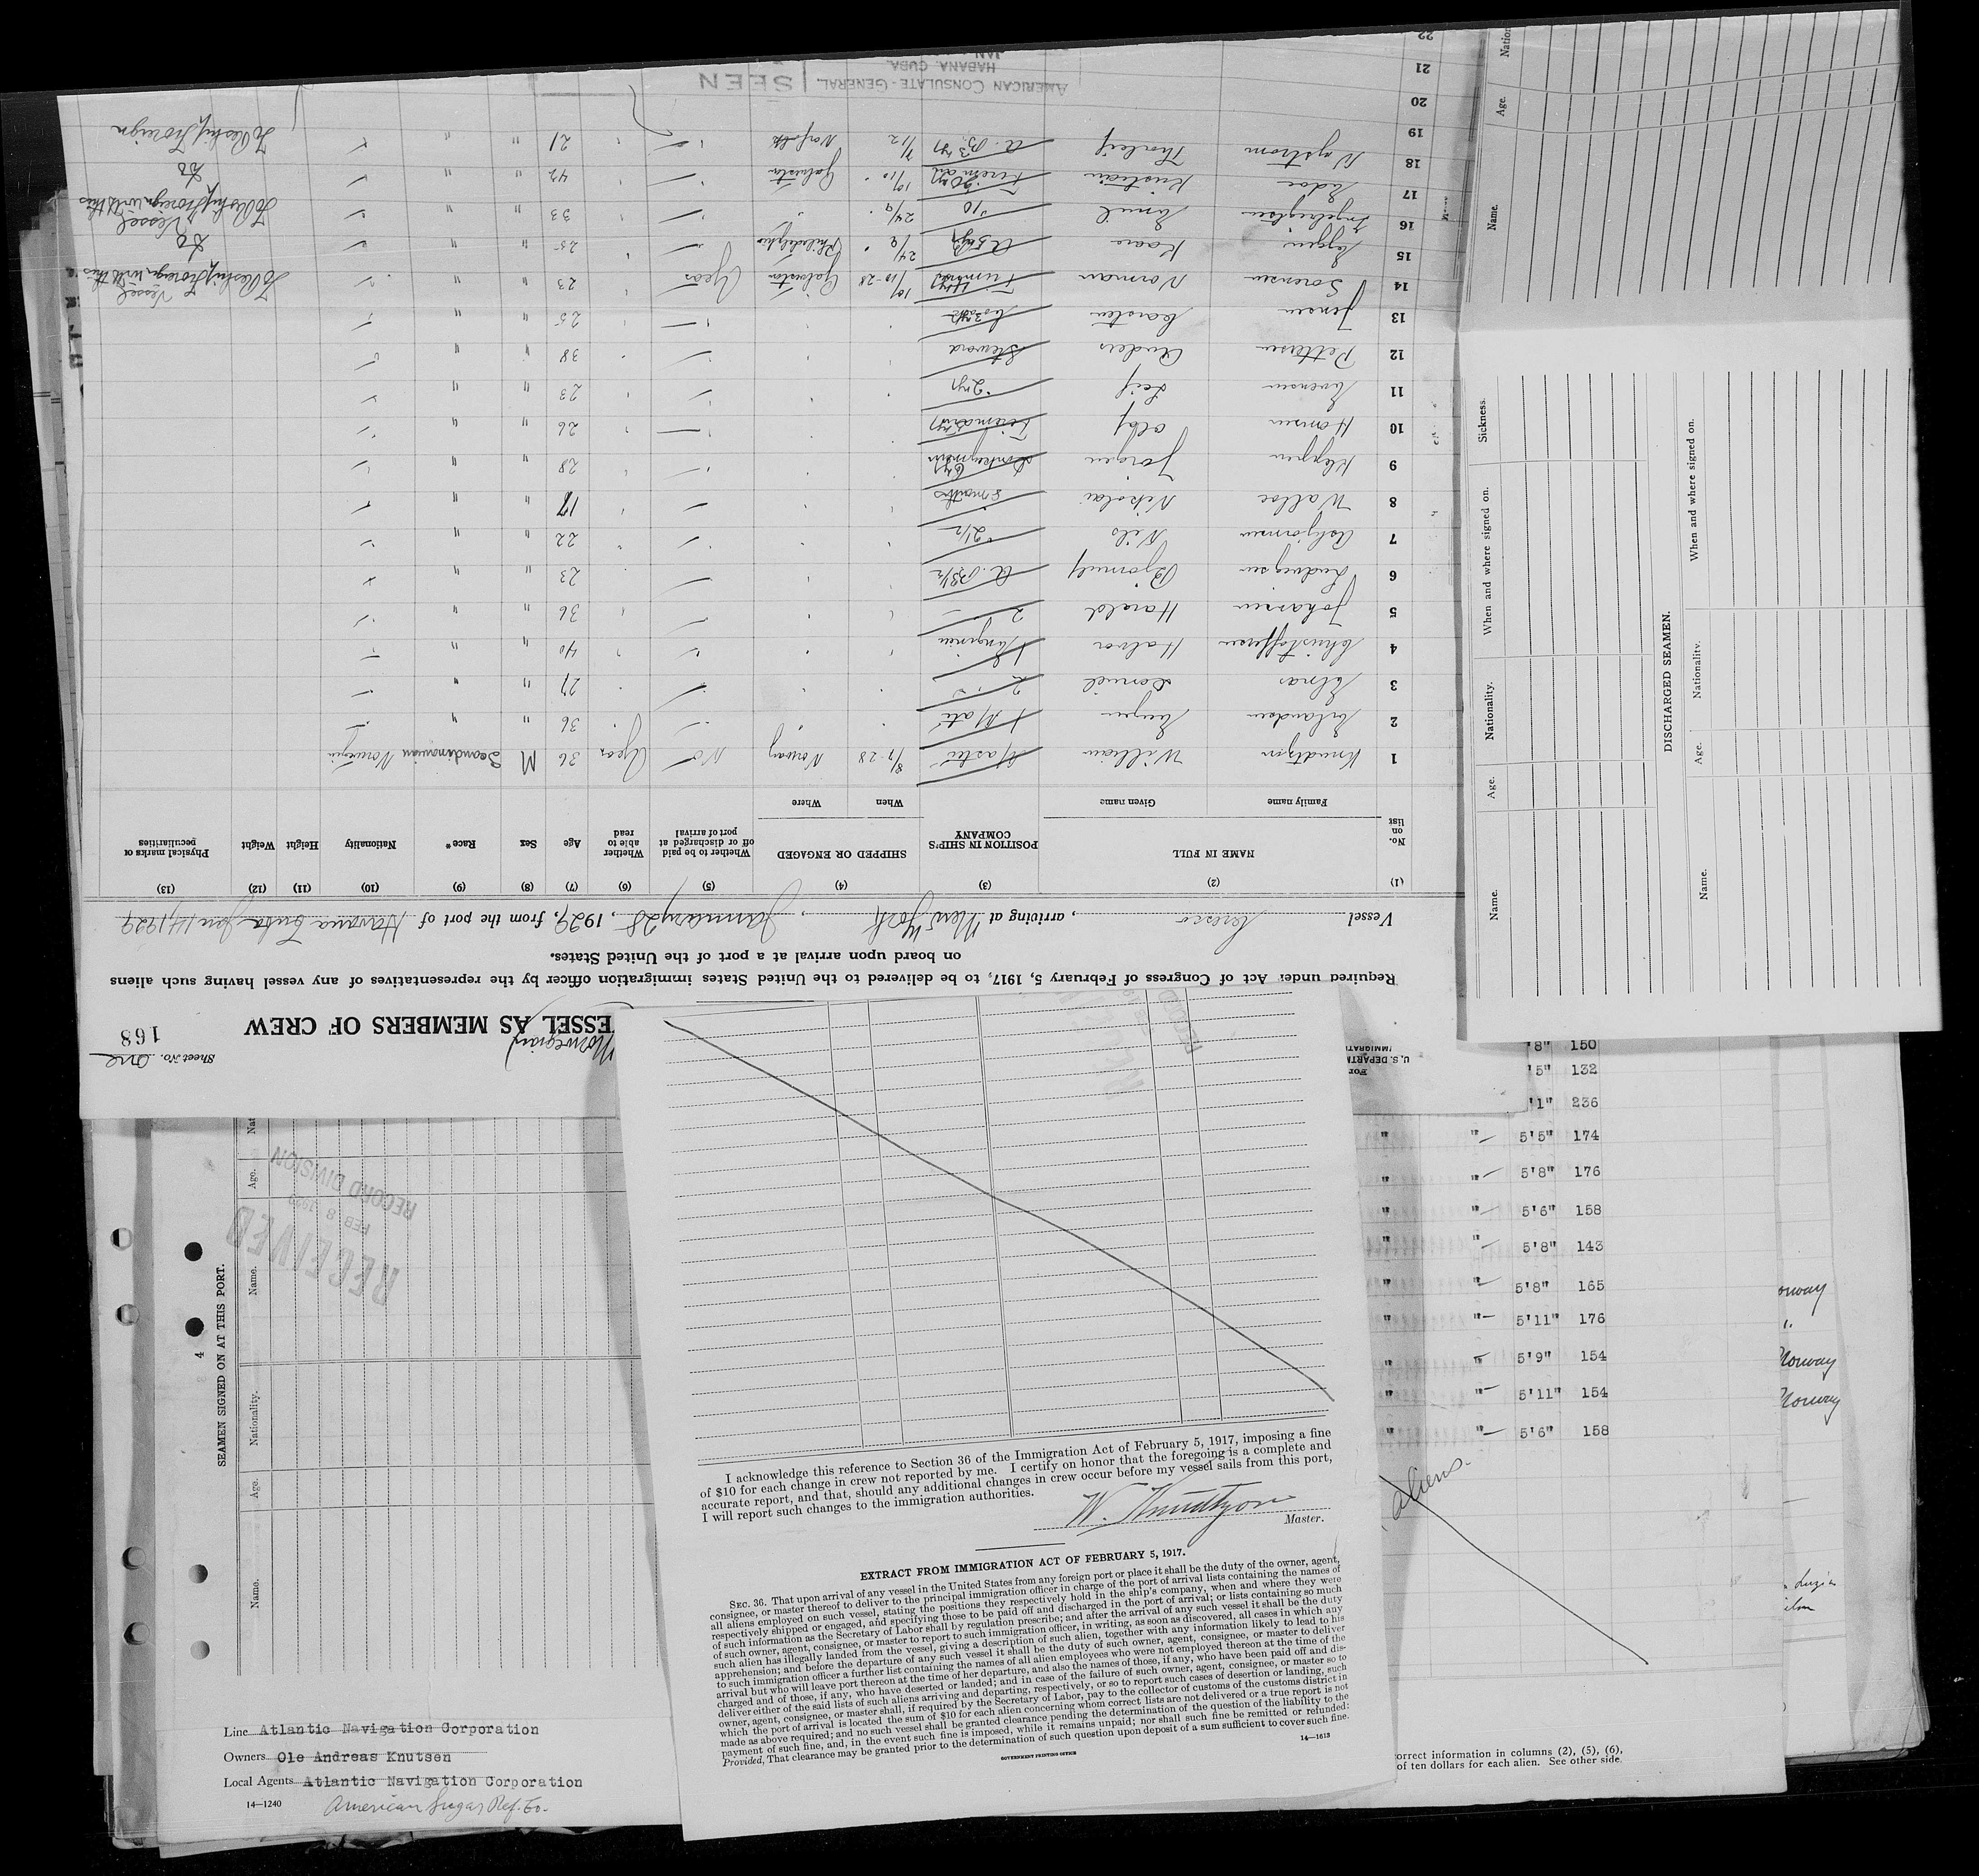 Sheet No. One
168
ESSEL AS MEMBERS OF CREW
(Norwegian)
Required under Act of Congress of February 5, 1917, to be delivered to the United States immigration officer by the representatives of any vessel having such aliens
on board upon arrival at a port of the United States.
Vessel , arriving at New York , January 28 , 1929, from the port of Havana Cuba Jan 14, 1929
(1) (2) (3) (4) (5) (6) (7) (8) (9) (10) (11) (12) (13)
No. on list NAME IN FULL POSITION IN SHIP'S COMPANY SHIPPED OR ENGAGED Whether to be paid off or discharged at port of arrival Whether able to read Age Sex Race* Nationality Height Weight Physical marks or peculiarities
Family name Given name When Where
1 Knudtzon William Master 8/7-28 Norway No Yes 36 M Scandinavian Norwegian
2 Erlandsen 1 Mate 36 " "
3 Daniel 2 27 " "
4 Christoffersen Halvor 1 Engineer 40 " "
5 Johansen Harald 2 36 " "
6 Ludvigsen Bjornulf A.B. 3½ 23 " "
7 Asbjornsen Nils 2½ 22 " "
8 Walloe Nikolai 8 months 17 " "
9 Kleppen Jorgen Donkeyman 28 " "
10 Hansen Olaf Fireman 26 " "
11 Evensen Leif 2 yrs 23 " "
12 Pettersen Anders Steward 38 " "
13 Jensen Carsten 25 " "
14 Sorensen Norman 10/10-28 Galveston Yes 23 " " To Reship Foreign with this Vessel
15 Kaare 24/9 Philadelphia 25 " " Do
16 Ingebrigtsen Emil 10 24/9 33 " " To Reship Foreign with this Vessel
17 Kristian Fireman 10/10 Galveston 42 " " Do
18 Nystrom Thorleif A.B. 3 yrs 7/12 Norfolk 21 " " To Reship Foreign
19
20
21
22
AMERICAN CONSULATE-GENERAL
HABANA, CUBA.
JAN
SEEN
For
U. S. DEPARTM
IMMIGRATI
Name. Age. Nation
Name. Age. Nationality. When and where signed on. Sickness.
DISCHARGED SEAMEN.
Name. Age. Nationality. When and where signed on.
'8" 150
'5" 132
'1" 236
" " 5'5" 174
" " 5'8" 176
" " 5'6" 158
" " 5'8" 143
" " 5'8" 165
" " 5'11" 176
" " 5'9" 154
" " 5'11" 154
" " 5'6" 158
aliens.
orway
"
Norway
Norway
orrect information in columns (2), (5), (6),
of ten dollars for each alien. See other side.
4
SEAMEN SIGNED ON AT THIS PORT.
Name. Age. Nationality. Name. Age. Nat
RECEIVED
FEB 8 1929
RECORD DIVISION
Line Atlantic Navigation Corporation
Owners Ole Andreas Knutsen
Local Agents Atlantic Navigation Corporation
14—1240
American Sugar Ref. Co.
I acknowledge this reference to Section 36 of the Immigration Act of February 5, 1917, imposing a fine
of $10 for each change in crew not reported by me. I certify on honor that the foregoing is a complete and
accurate report, and that, should any additional changes in crew occur before my vessel sails from this port,
I will report such changes to the immigration authorities.
W. Knudtzon
Master.
EXTRACT FROM IMMIGRATION ACT OF FEBRUARY 5, 1917.
SEC. 36. That upon arrival of any vessel in the United States from any foreign port or place it shall be the duty of the owner, agent,
consignee, or master thereof to deliver to the principal immigration officer in charge of the port of arrival lists containing the names of
all aliens employed on such vessel, stating the positions they respectively hold in the ship's company, when and where they were
respectively shipped or engaged, and specifying those to be paid off and discharged in the port of arrival; or lists containing so much
of such information as the Secretary of Labor shall by regulation prescribe; and after the arrival of any such vessel it shall be the duty
of such owner, agent, consignee, or master to report to such immigration officer, in writing, as soon as discovered, all cases in which any
such alien has illegally landed from the vessel, giving a description of such alien, together with any information likely to lead to his
apprehension; and before the departure of any such vessel it shall be the duty of such owner, agent, consignee, or master to deliver
to such immigration officer a further list containing the names of all alien employees who were not employed thereon at the time of the
arrival but who will leave port thereon at the time of her departure, and also the names of those, if any, who have been paid off and dis-
charged and of those, if any, who have deserted or landed; and in case of the failure of such owner, agent, consignee, or master so to
deliver either of the said lists of such aliens arriving and departing, respectively, or so to report such cases of desertion or landing, such
owner, agent, consignee, or master shall, if required by the Secretary of Labor, pay to the collector of customs of the customs district in
which the port of arrival is located the sum of $10 for each alien concerning whom correct lists are not delivered or a true report is not
made as above required; and no such vessel shall be granted clearance pending the determination of the question of the liability to the
payment of such fine, and, in the event such fine is imposed, while it remains unpaid; nor shall such fine be remitted or refunded:
Provided, That clearance may be granted prior to the determination of such question upon deposit of a sum sufficient to cover such fine.
14—1613
GOVERNMENT PRINTING OFFICE